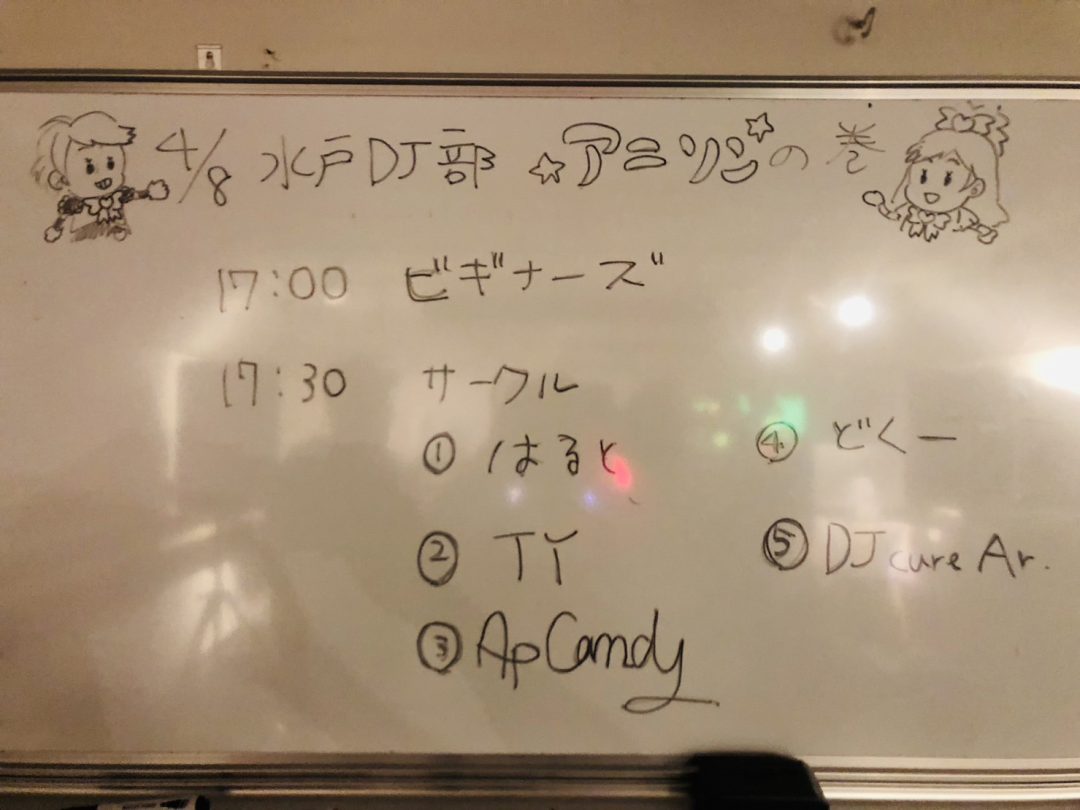 4/8 水戸DJ部 アニソンの巻
17:00 ビギナーズ
17:30 サークル
① はると
② TY
③ ApCandy
④ どくー
⑤ DJ cure Ar.